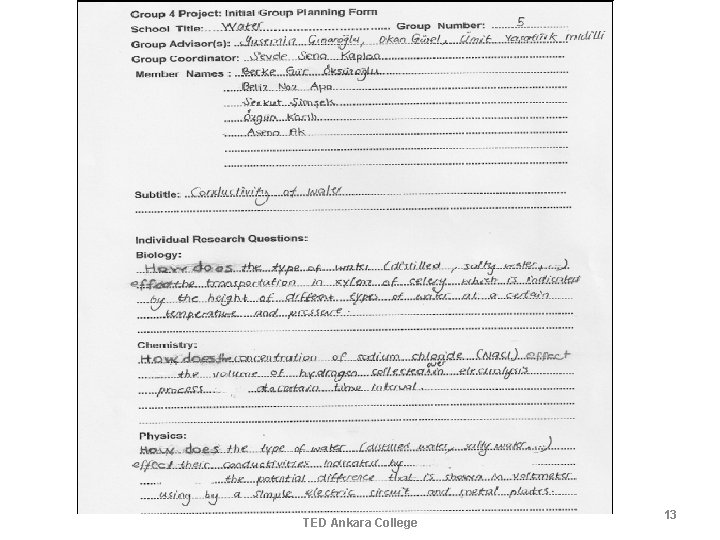 Group 4 Project: Initial Group Planning Form
School Title: Water Group Number: 5
Group Advisor(s): Yasemin Çınaroğlu, Okan Gürel, Ümit midilli
Group Coordinator: Sevde Sena Kaplan
Member Names : Berke Gür Öksüroğlu
Beliz Naz Apa
Serkut Şimşek
Özgün
Asena Ak
Subtitle: Conductivity of water
Individual Research Questions:
Biology:
How does the type of water (distilled, salty water, ...)
effect the transportation in xylem of celery which is indicated
by the height of different types of water at a certain
temperature and pressure.
Chemistry:
How does the concentration of sodium chloride (NaCl) effect
the volume of hydrogen collected in over electrolysis
process at a certain time interval.
Physics:
How does the type of water (distilled water, salty water, ...)
effect their conductivities indicated by
the potential difference that is shown in voltmeter
using by a simple electric circuit and metal plates.
TED Ankara College
13